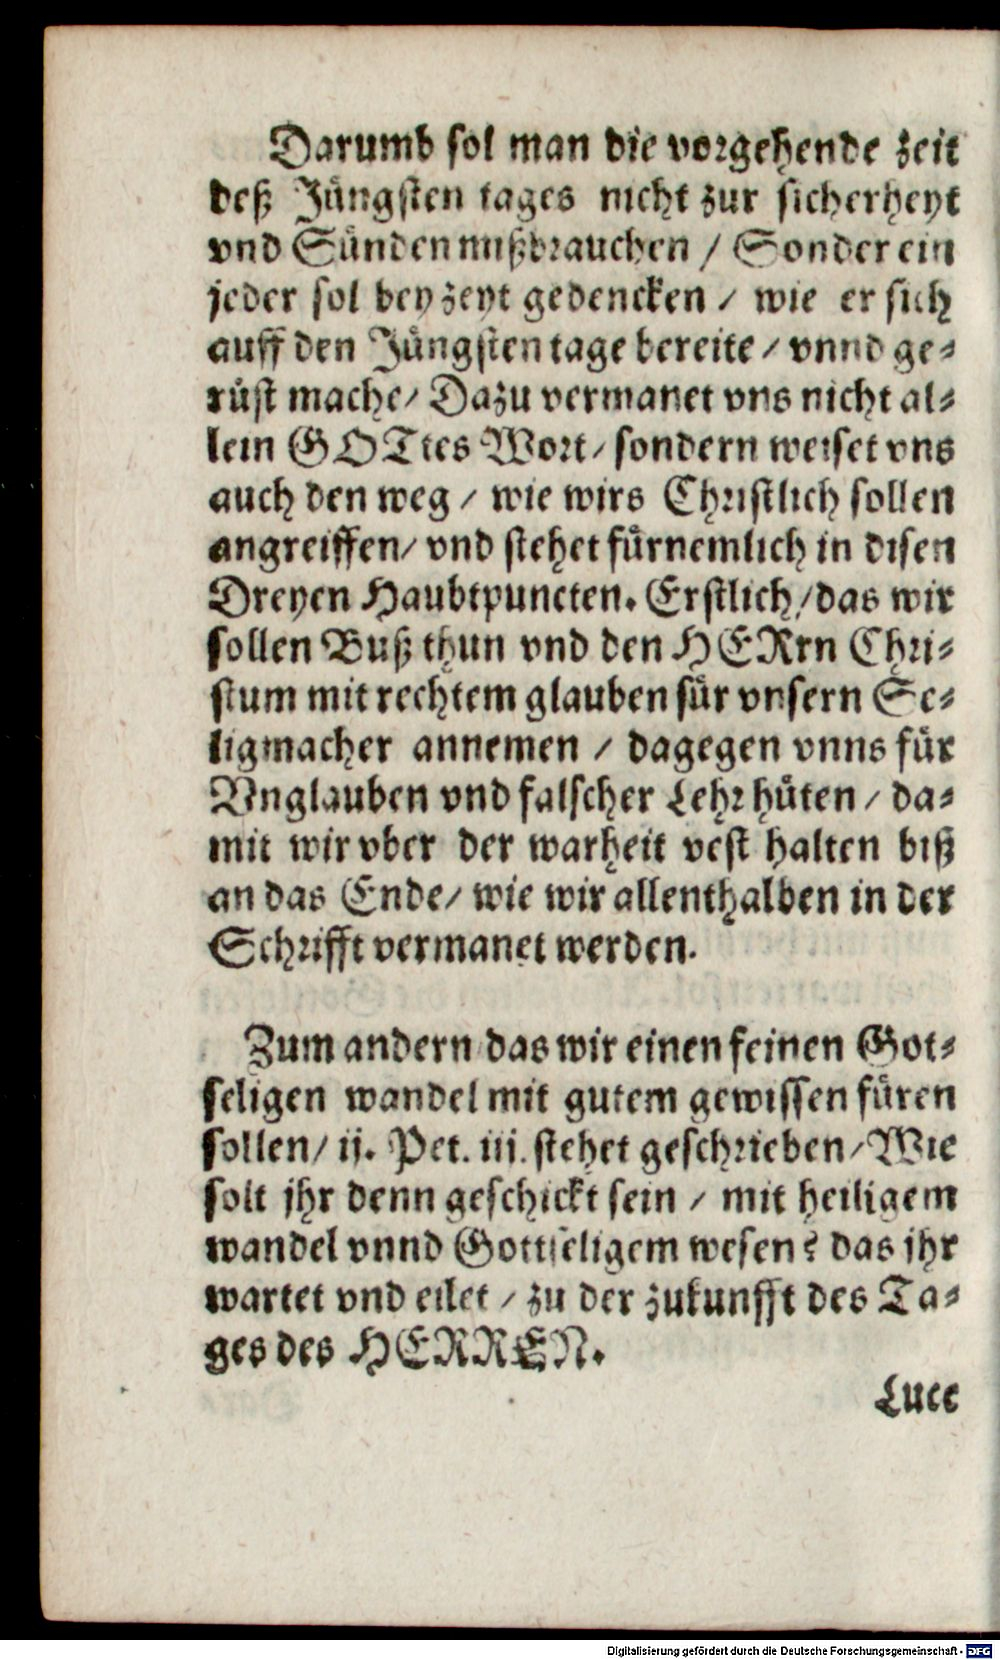 Darumb sol man die vorgehende zeit
deß Jüngsten tages nicht zur sicherheyt
vnd Sünden mißbrauchen / Sonder ein
jeder sol bey zeyt gedencken / wie er sich
auff den Jüngsten tage bereite / vnnd ge⸗
rüst mache / Dazu vermanet vns nicht al⸗
lein GOTtes Wort / sondern weiset vns
auch den weg / wie wirs Christlich sollen
angreiffen / vnd stehet fürnemlich in disen
Dreyen Haubtpuncten. Erstlich / das wir
sollen Buß thun vnd den HERrn Chri⸗
stum mit rechtem glauben für vnsern Se⸗
ligmacher annemen / dagegen vnns für
Vnglauben vnd falscher Lehr hüten / da⸗
mit wir vber der warheit vest halten biß
an das Ende / wie wir allenthalben in der
Schrifft vermanet werden.
Zum andern das wir einen feinen Got⸗
seligen wandel mit gutem gewissen füren
sollen / ij. Pet. iii. stehet geschrieben / Wie
solt jhr denn geschickt sein / mit heiligem
wandel vnnd Gottseligem wesen? das jhr
wartet vnd eilet / zu der zukunfft des Ta⸗
ges des HERREN.
Luce
Digitalisierung gefördert durch die Deutsche Forschungsgemeinschaft - DFG